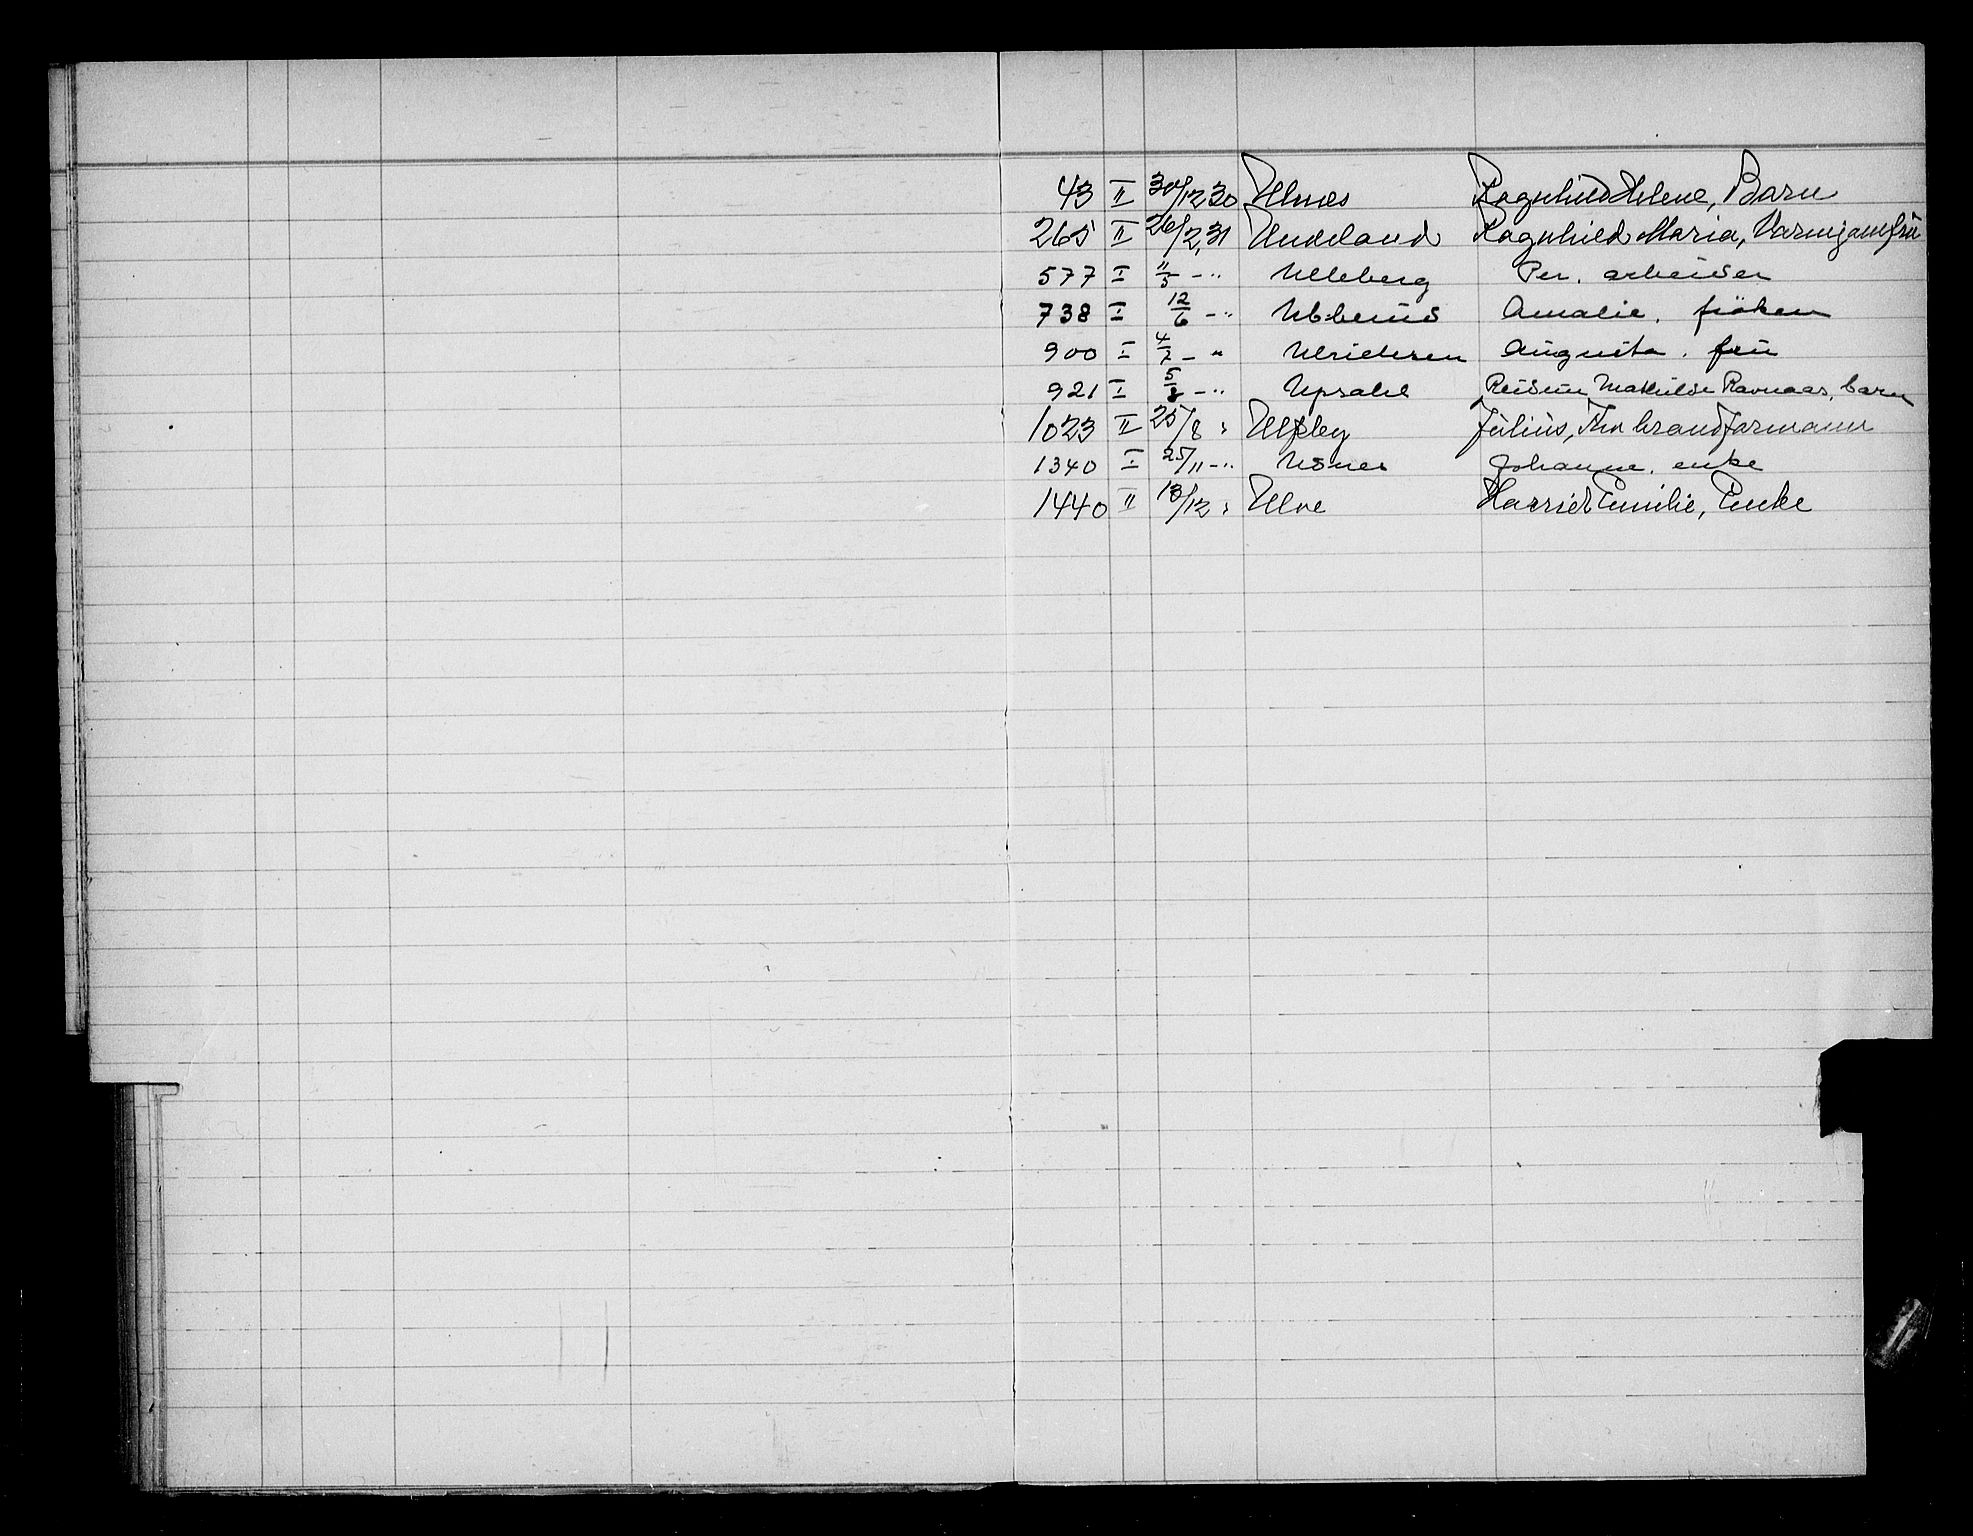 43 II 30/12 30 Ulnæs Ragnhild Helene, Barn
265 II 26/2 31 Undeland Ragnhild Maria,
577 I 11/5 - " Ulleberg Per. arbeider
738 I 12/6 - " Ubberud Amalie. frøken
900 I 4/7 - " Ulrichsen Augusta. fru
921 I 5/8 - " Upsahl Reidun Mathilde Ravnaas, barn
1023 II 25/8 " Ulfsby Julius,
1340 I 25/11 - " Udnes Johanne. enke
1440 II 13/12 " Ulve Harriet Emilie, Enke